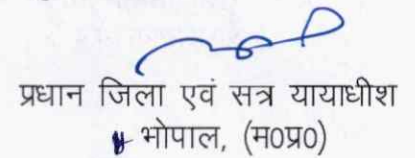 प्रधान जिला एवं सत्र यायाधीश
भोपाल, (म0प्र0)